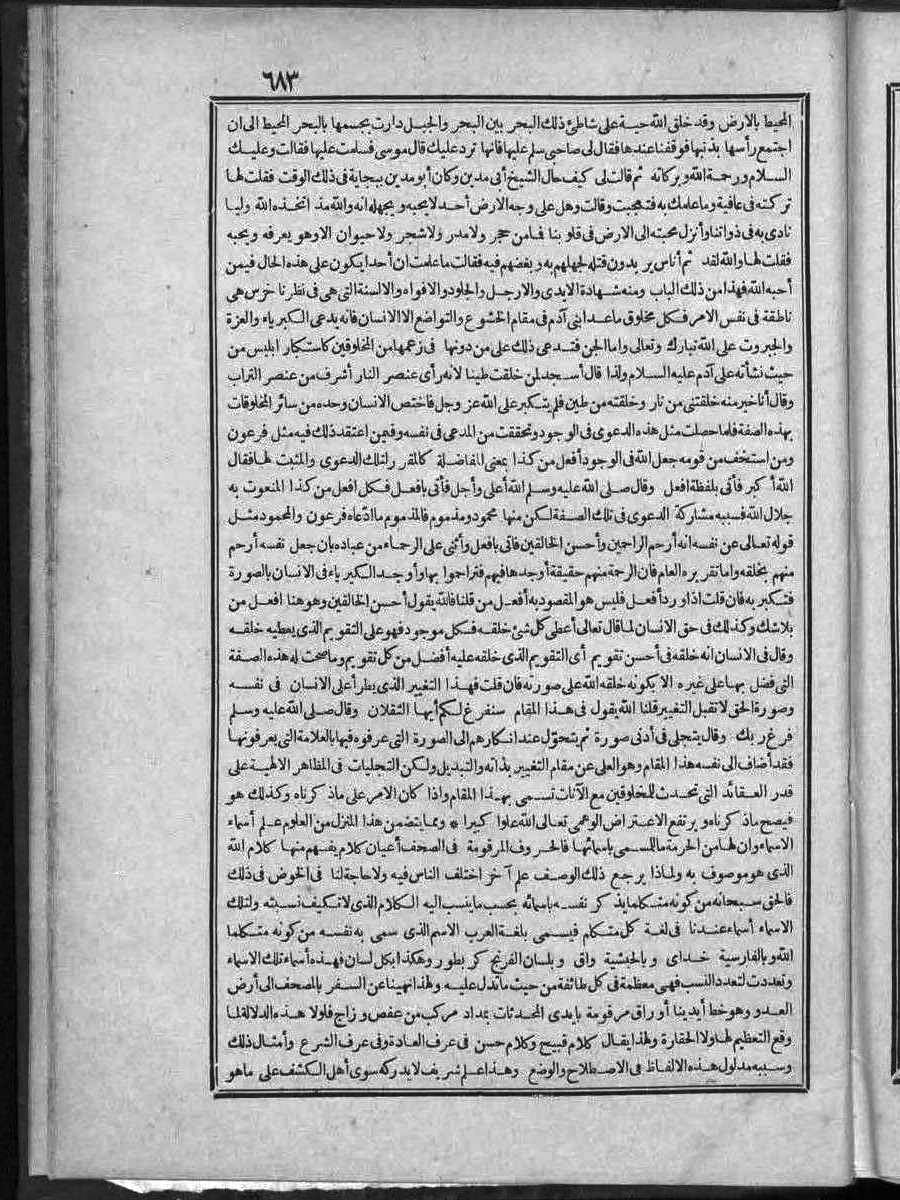 ٦٨٣
المحيط بالارض وقد خلق الله حية على شاطئ ذلك البحر بين البحر والجبل دارت بجسمها بالبحر المحيط الى ان
اجتمع رأسها بذنبها فوقفنا عندها فقال لى صاحبى سلم عليها فانها ترد عليك قال موسى فسلمت عليها فقالت وعليك
السلام ورحمة الله وبركاته ثم قالت لى كيف حال الشيخ أبى مدين وكان أبو مدين ببجاية فى ذلك الوقت فقلت لها
تركته فى عافية وما علمك به فتعجبت وقالت وهل على وجه الارض أحد لا يحبه ويجهله انه والله مذ اتخذه الله وليا
نادى به فى ذواتنا وأنزل محبته الى الارض فى قلوبنا فما من حجر ولا مدر ولا شجر ولا حيوان الا وهو يعرفه ويحبه
فقلت لها والله لقد ثم أناس يريدون قتله لجهلهم به وبغضهم فيه فقالت ما علمت ان أحدا يكون على هذه الحال فيمن
أحبه الله فهذا من ذلك الباب ومنه شهادة الايدى والارجل والجلود والافواه والالسنة التى هى فى نظرنا خرس هى
ناطقة فى نفس الامر فكل مخلوق ما عدا بنى آدم فى مقام الخشوع والتواضع الا الانسان فانه يدعى الكبرياء والعزة
والجبروت على الله تبارك وتعالى واما الجن فتدعى ذلك على من دونها فى زعمها من المخلوقين كاستكبار ابليس من
حيث نشأته على آدم عليه السلام ولذا قال أسجد لمن خلقت طينا لانه رأى عنصر النار أشرف من عنصر التراب
وقال أنا خير منه خلقتنى من نار وخلقته من طين فلم يتكبر على الله عز وجل فاختص الانسان وحده من سائر المخلوقات
بهذه الصفة فلما حصلت مثل هذه الدعوى فى الوجود وتحققت من المدعى فى نفسه وفيمن اعتقد ذلك فيه مثل فرعون
ومن استخف من قومه جعل الله فى الوجود أفعل من كذا بمعنى المفاضلة كالمقر رلتلك الدعوى والمثبت لها فقال
الله أكبر فأتى بلفظة افعل وقال صلى الله عليه وسلم الله أعلى وأجل فأتى بافعل فكل افعل من كذا المنعوت به
جلال الله فسببه مشاركة الدعوى فى تلك الصفة لكن منها محمود ومذموم فالمذموم ما ادعاه فرعون والمحمود مثل
قوله تعالى عن نفسه انه أرحم الراحمين وأحسن الخالقين فاتى بافعل وأثنى على الرحماء من عباده بان جعل نفسه أرحم
منهم بخلقه واما تقريره العام فان الرحمة منهم حقيقة أوجدها فيهم فتراحموا بها وأوجد الكبرياء فى الانسان بالصورة
فتكبر به فان قلت اذا ورد أفعل فليس هو المقصود به أفعل من قلنا فالله يقول أحسن الخالقين وهو هنا افعل من
بلا شك وكذلك فى حق الانسان لما قال تعالى أعطى كل شئ خلقه فكل موجود فهو على التقويم الذى يعطيه خلقه
وقال فى الانسان انه خلقه فى أحسن تقويم أى التقويم الذى خلقه عليه أفضل من كل تقويم وما صحت له هذه الصفة
التى فضل بها على غيره الا بكونه خلقه الله على صورته فان قلت فهذا التغيير الذى يطرأ على الانسان فى نفسه
وصورة الحق لا تقبل التغيير قلنا الله يقول فى هذا المقام سنفرغ لكم أيها الثقلان وقال صلى الله عليه وسلم
فرغ ربك وقال يتجلى فى أدنى صورة ثم يتحول عند انكارهم الى الصورة التى عرفوه فيها بالعلامة التى يعرفونها
فقد أضاف الى نفسه هذا المقام وهو العلى عن مقام التغيير بذاته والتبديل ولكن التجليات فى المظاهر الالهية على
قدر العقائد التى تحدث للمخلوقين مع الآنات تسمى بهذا المقام واذا كان الامر على ما ذكرناه وكذلك هو
فيصح ما ذكرناه ويرتفع الاعتراض الوهمى تعالى الله علوا كبيرا * ومما يتضمن هذا المنزل من العلوم علم أسماء
الاسماء وان لها من الحرمة ما للمسمى باسمائها فالحروف المرقومة فى الصحف أعيان كلام يفهم منها كلام الله
الذى هو موصوف به ولماذا يرجع ذلك الوصف علم آخر اختلف الناس فيه ولا حاجة لنا فى الخوض فى ذلك
فالحق سبحانه من كونه متكلما يذكر نفسه باسمائه بحسب ما ينسب اليه الكلام الذى لا تكيف نسبته ولتلك
الاسماء أسماء عندنا فى لغة كل متكلم فيسمى بلغة العرب الاسم الذى سمى به نفسه من كونه متكلما
الله وبالفارسية خداى وبالحبشية واق وبلسان الفرنج كريطور وهكذا بكل لسان فهذه أسماء تلك الاسماء
وتعددت لتعدد النسب فهى معظمة فى كل طائفة من حيث ما تدل عليه ولهذا نهينا عن السفر بالمصحف الى أرض
العدو وهو خط أيدينا أوراق مرقومة بايدى المحدثات بمداد مركب من عفص وزاج فلولا هذه الدلالة لما
وقع التعظيم لها ولا الحقارة ولهذا يقال كلام قبيح وكلام حسن فى عرف العادة وفى عرف الشرع وأمثال ذلك
وسببه مدلول هذه الالفاظ فى الاصطلاح والوضع وهذا علم شريف لا يدركه سوى أهل الكشف على ما هو